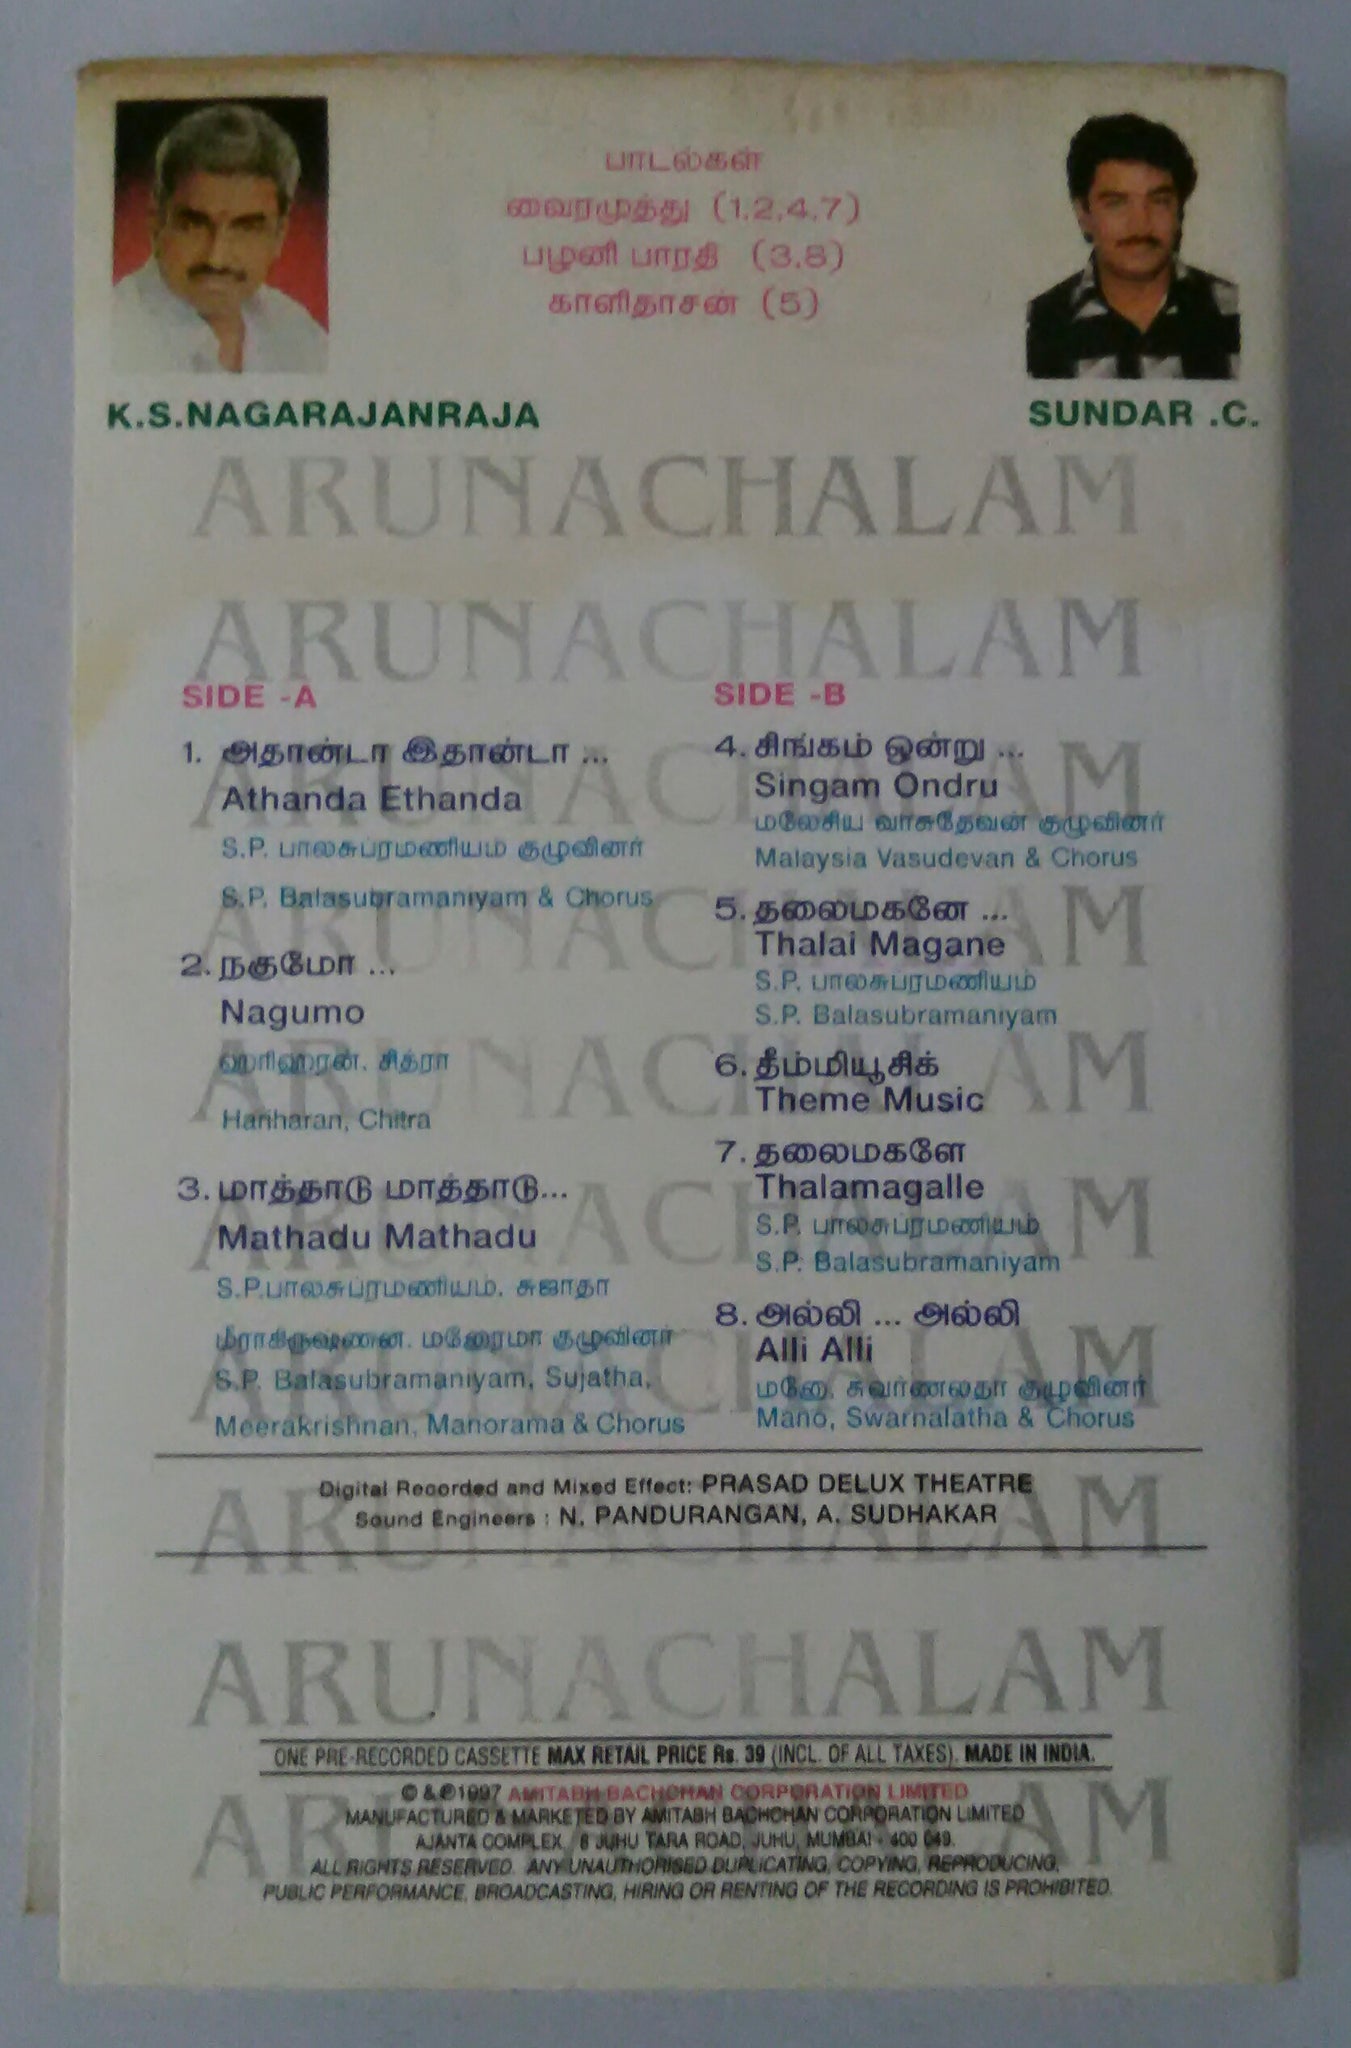 பாடல்கள்
வைரமுத்து (1,2,4,7)
பழனி பாரதி (3,8)
காளிதாசன் (5)
K.S.NAGARAJANRAJA
SUNDAR .C.
ARUNACHALAM
ARUNACHALAM
SIDE -A
1. அதான்டா இதான்டா ...
Athanda Ethanda
S.P. பாலசுப்ரமணியம் குழுவினர்
S.P. Balasubramaniyam & Chorus
2. நகுமோ ...
Nagumo
ஹரிஹரன், சித்ரா
Hariharan, Chitra
3. மாத்தாடு மாத்தாடு...
Mathadu Mathadu
S.P.பாலசுப்ரமணியம், சுஜாதா
மீராகிருஷ்ணன், மனோரமா குழுவினர்
S.P. Balasubramaniyam, Sujatha,
Meerakrishnan, Manorama & Chorus
SIDE -B
4. சிங்கம் ஒன்று ...
Singam Ondru
மலேசிய வாசுதேவன் குழுவினர்
Malaysia Vasudevan & Chorus
5. தலைமகனே ...
Thalai Magane
S.P. பாலசுப்ரமணியம்
S.P. Balasubramaniyam
6. தீம்மியூசிக்
Theme Music
7. தலைமகளே
Thalamagalle
S.P. பாலசுப்ரமணியம்
S.P. Balasubramaniyam
8. அல்லி ... அல்லி
Alli Alli
மனோ, சுவர்ணலதா குழுவினர்
Mano, Swarnalatha & Chorus
ARUNACHALAM
ARUNACHALAM
ARUNACHALAM
ARUNACHALAM
ARUNACHALAM
Digital Recorded and Mixed Effect: PRASAD DELUX THEATRE
Sound Engineers : N. PANDURANGAN, A. SUDHAKAR
ARUNACHALAM
ARUNACHALAM
ONE PRE-RECORDED CASSETTE MAX RETAIL PRICE Rs. 39 (INCL. OF ALL TAXES). MADE IN INDIA.
© & ℗ 1997 AMITABH BACHCHAN CORPORATION LIMITED
MANUFACTURED & MARKETED BY AMITABH BACHCHAN CORPORATION LIMITED
AJANTA COMPLEX 8 JUHU TARA ROAD, JUHU, MUMBAI - 400 049.
ALL RIGHTS RESERVED. ANY UNAUTHORISED DUPLICATING, COPYING, REPRODUCING,
PUBLIC PERFORMANCE, BROADCASTING, HIRING OR RENTING OF THE RECORDING IS PROHIBITED.
ARUNACHALAM